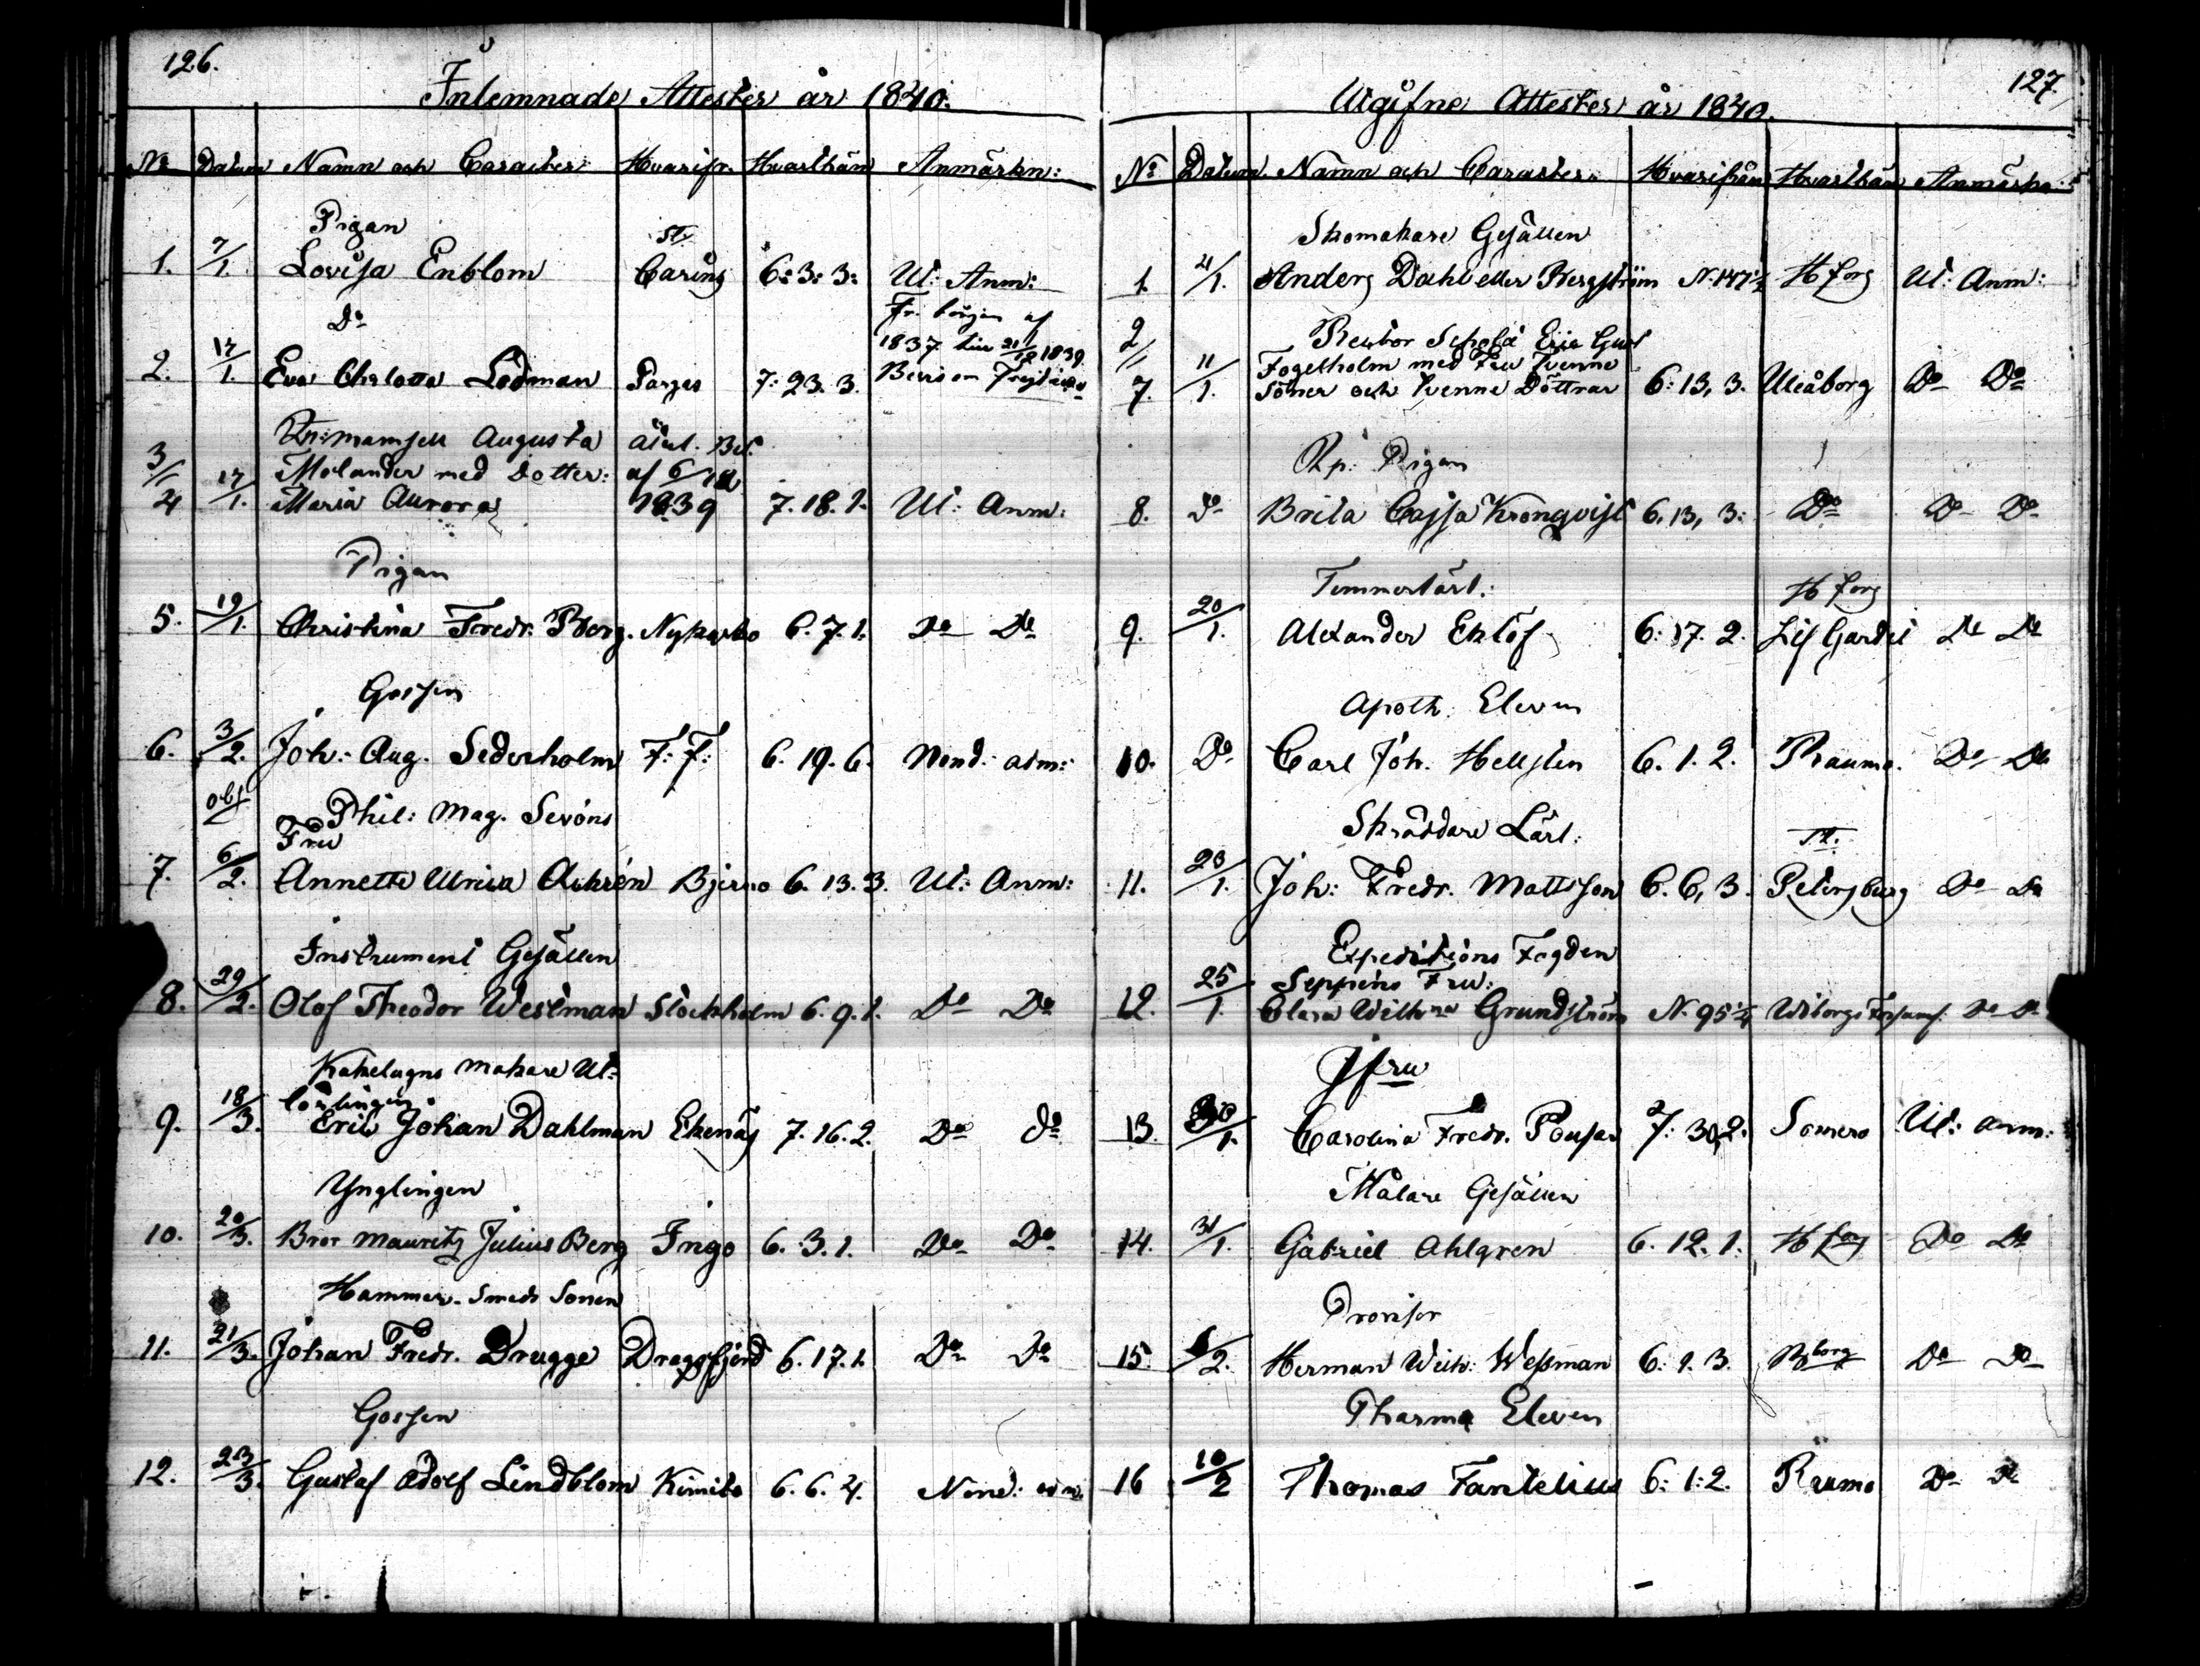 126.
Inlemnade Attester år 1840.
No Datum Namn och Caracter Hvarifr. Hvarthän Anmärkn:
Pigan St.
1. 7/1. Lovisa Enblom Carins 6:3:3: Ut: Anm:
Do Fr. början af
1837 till 21/12 1839
2. 17/1. Eva Charlotta Lodman Parges 7:23.3. Bevis om Frejd
mamsell Augusta Bet.
3/1 Molander med Dotter: af 6/12
4 17/1. Maria Aurora 1839 7.18.1. Ut: Anm:
Pigan
5. 19/1. Christina Fredr. Berg. Nykarko 6.7.1. Do Do
Gossen
6. 3/2. Joh: Aug. Sederholm F:F: 6.19.6. Nend: adm:
obs Phil: Mag. Sevóns
Fru
7. 6/2. Annette Ulrica Achrén Bjerno 6.13.3. Ut: Anm:
Instrument Gesällen
8. 29/2. Olof Theodor Westman Stockholm 6.9.1. Do Do
Kakelugns makare Ut=
lärlingen
9. 18/3. Eric Johan Dahlman Ekenäs 7.16.2. Do do
Ynglingen
10. 20/3. Bror Mauritz Julius Berg Ingo 6.3.1. Do Do
Hammer. Smeds Sonen
11. 21/3. Johan Fredr. Drugge Dragsfjerd 6.17.1. Do Do
Gossen
12. 23/3. Gustaf Adolf Lindblom Kimito 6.6.4. Nend: adm.
127.
Utgifne Attester år 1840.
No Datum. Namn och Caracter. Hvarifrån Hvarthän Anmärkn:
Skomakare Gesällen
1. 4/1. Anders Dahl eller Bergström N. 147 1/2 H fors Ut: Anm:
2 Rector Scholæ Eric Gust
/ 11 Fogelholm med Fru Tvenne
7. /1. Söner och tvenne Döttrar 6:13,3. Uleåborg Do Do
Pigan
8. do Brita Cajsa Kronqvist 6,13,3: Do Do Do
Timmerlärl: H fors
9. 20/1. Alexander Eklöf 6:17.2. Lif Gardet Do Do
Apoth: Eleven
10. Do Carl Joh. Hellsten 6.1.2. Raumo. Do Do
Skräddare Lärl: St.
11. 23/1. Joh: Fredr. Mattsson 6.6,3. Petersburg Do Do
Expeditions Fogden
25 Seppens Fru:
12. /1. Clara Wilhna Grundström N. 95 1/4 Wiborgs Församl. Do Do
Jfru
13. 30/1. Carolina Fredr. Pousar 7:30,2: Somero Ut: Anm:
Målare Gesällen
14. 31/1. Gabriel Ahlgren 6.12.1. H fors Do Do
Provisor
15. 6/2. Herman Wilh: Wessman 6:1.3. Bborg Do Do
Pharma Eleven
16 10/2 Thomas Fantelius 6:1:2. Raumo Do Do